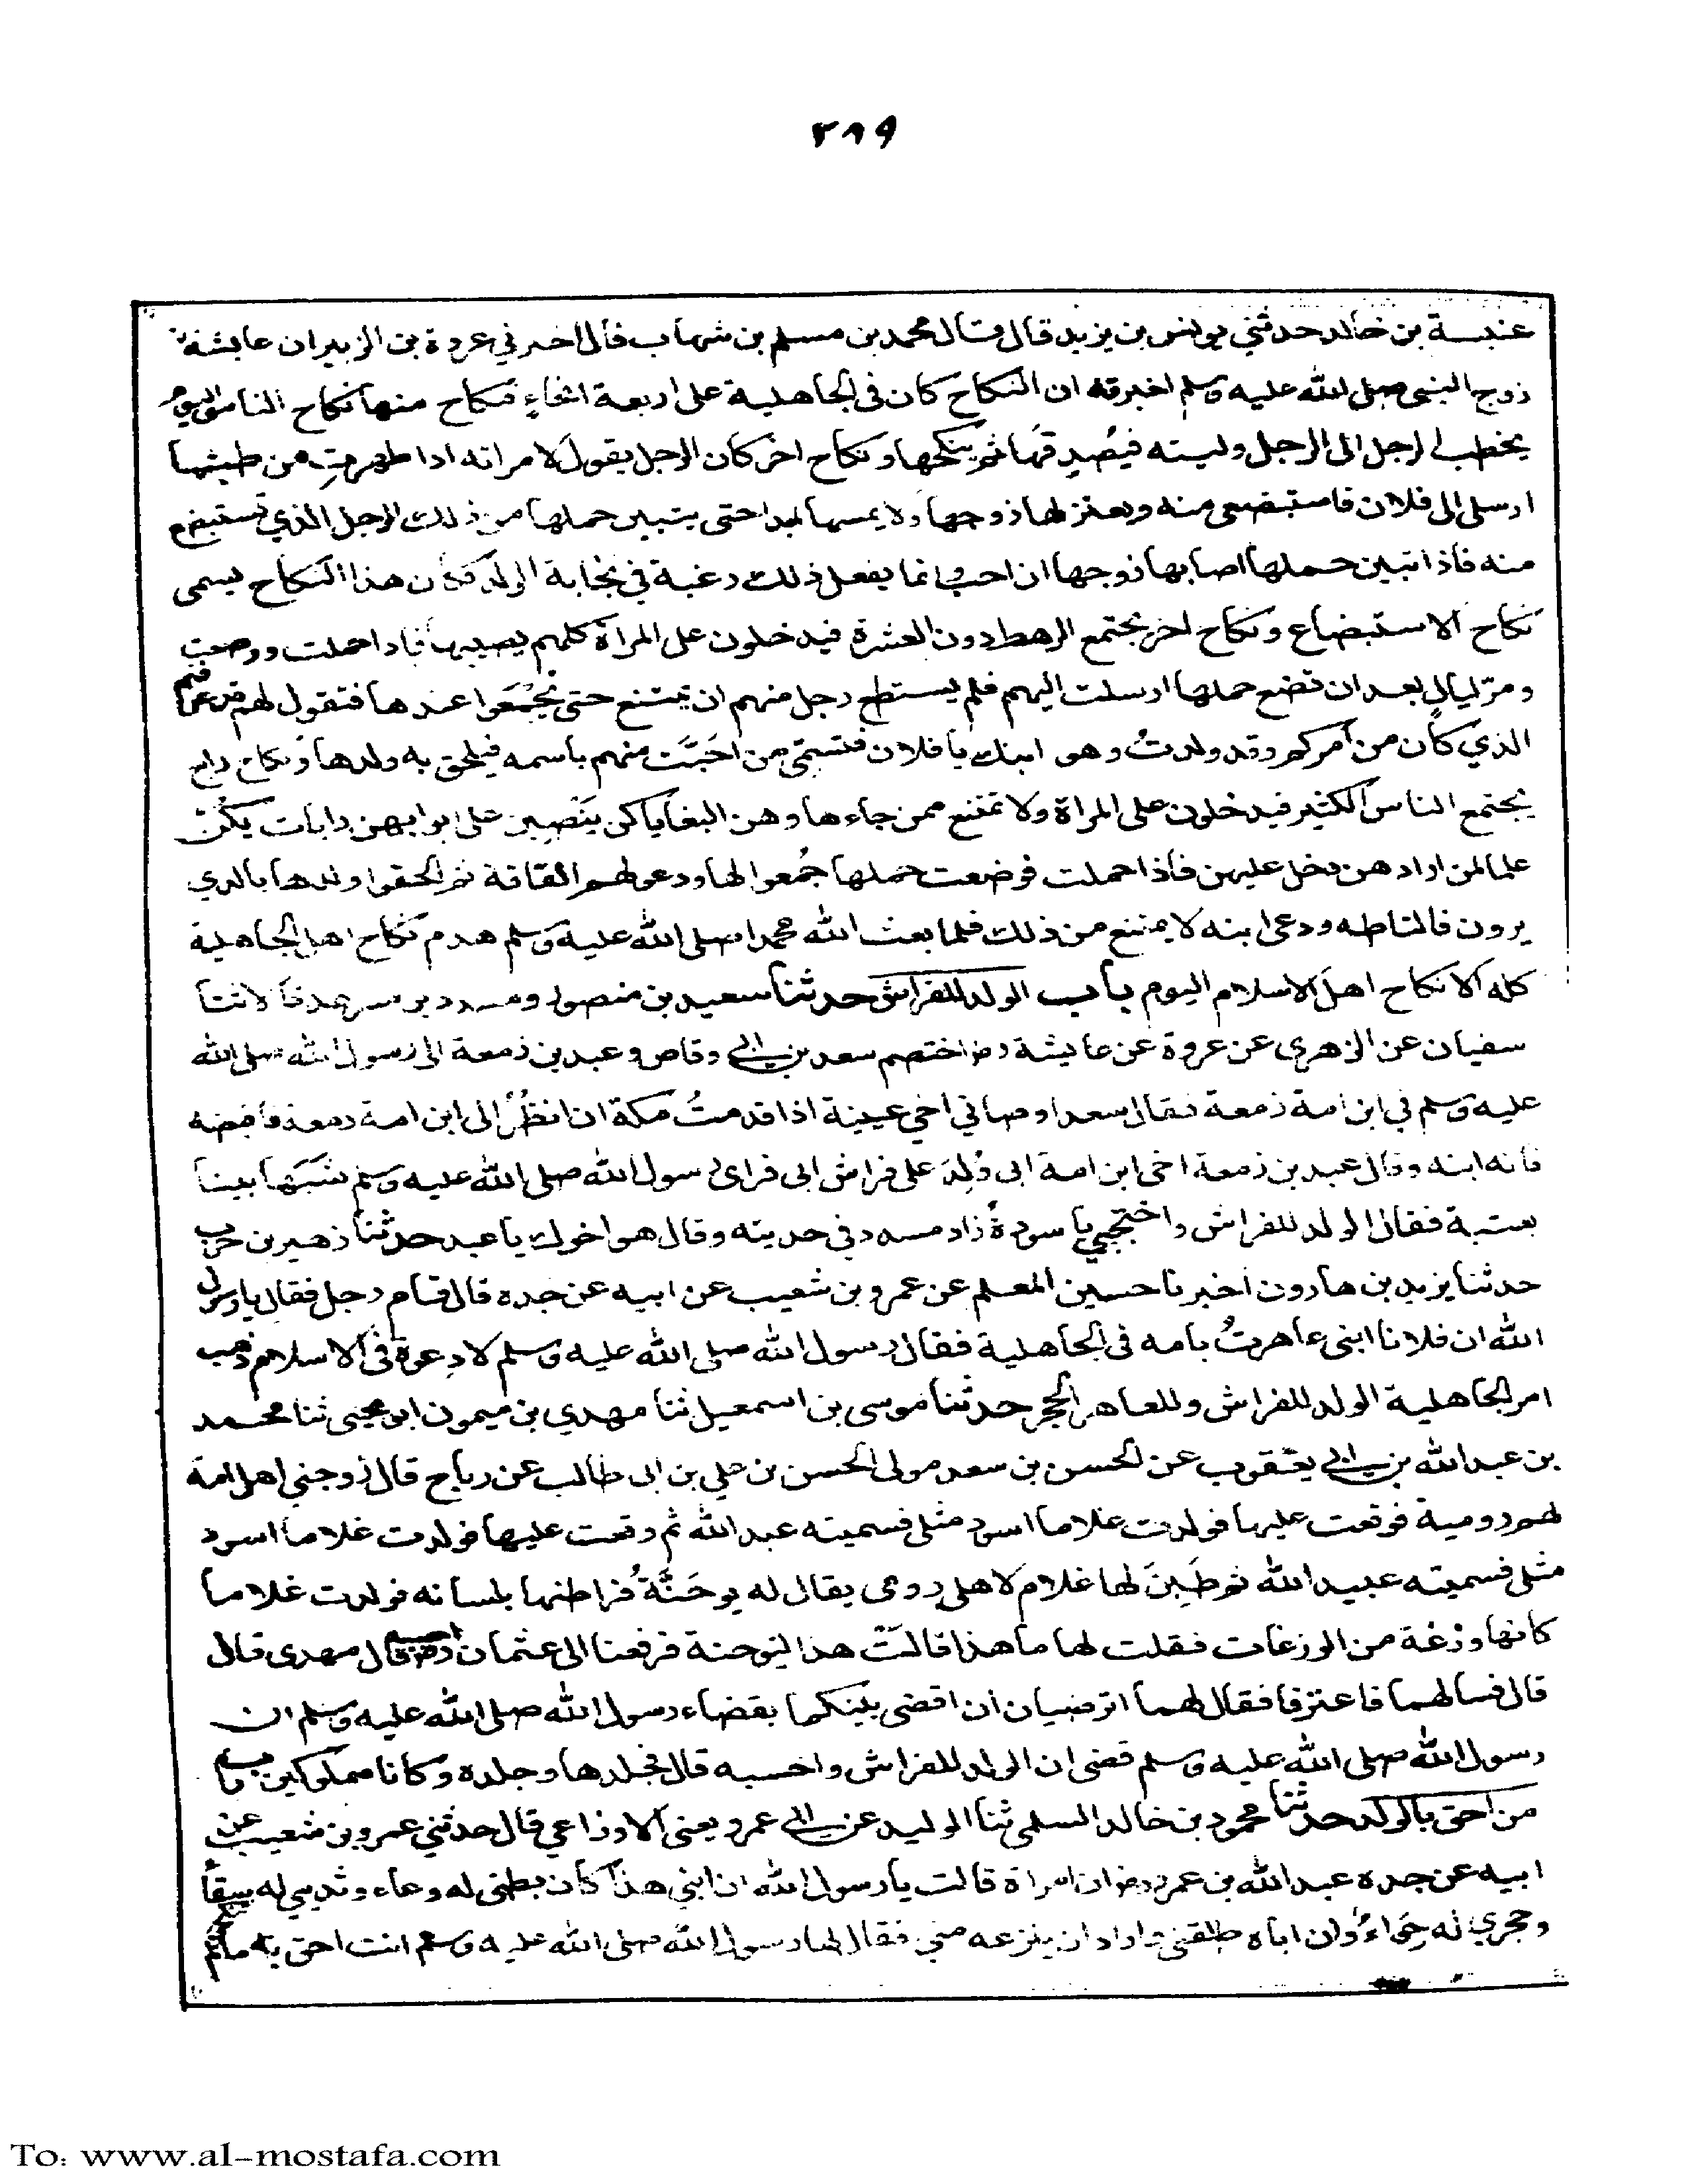 ٣٨٩
عنبسة بن خالد حدثني يونس بن يزيد قال قال محمد بن مسلم بن شهاب قال اخبرني عروة بن الزبير ان عايشة
زوج النبي صلى الله عليه وسلم اخبرته ان النكاح كان في الجاهلية على اربعة انحاءٍ فنكاح منها نكاح الناس اليوم
يخطب الرجل الى الرجل وليته فيُصدِقَها ثم ينكحها ونكاح اخر كان الرجل يقول لامراته اذا طهرتِ من طمثها
ارسلي الى فلان فاستبضعي منه ويعتزلها زوجها ولا يمسها ابدا حتى يتبين حملها من ذلك الرجل الذي تستبضع
منه فاذا تبين حملها اصابها زوجها ان احب وانما يفعل ذلك رغبة في نجابة الولد فكان هذا النكاح يسمى
نكاح الاستبضاع ونكاح اخر يجتمع الرهط دون العشرة فيدخلون على المراة كلهم يصيبها فاذا حملت ووضعت
ومر ليالٍ بعد ان تضع حملها ارسلت اليهم فلم يستطع رجل منهم ان يمتنع حتى يجْمَعوا عندها فتقول لهم قد عرفتم
الذي كان من امركم وقد ولدتُ وهو ابنك يا فلان فتسمّي من احَبَّت منهم باسمه فيلحق به ولدها ونكاح رابع
يجتمع الناس الكثير فيدخلون على المراة ولا تمتنع ممن جاءها وهن البغايا كن ينصبن على ابوابهن رايات يكُنّ
علما لمن ارادهن دخل عليهن فاذا حملت فوضعت حملها جُمعوا لها ودعوا لهم القافة ثم الحقوا ولدها بالذي
يرون فالتاطه ودعى ابنه لا يمتنع من ذلك فلما بعث الله محمدا صلى الله عليه وسلم هدم نكاح اهل الجاهلية
كله الا نكاح اهل الاسلام اليوم باب الولد للفراش حدثنا سعيد بن منصور ومسدد بن مسرهد قالا ثنا
سفيان عن الزهري عن عروة عن عايشة رضـ اختصم سعد بن ابي وقاص وعبد بن زمعة الى رسول الله صلى الله
عليه وسلم في ابن امة زمعة فقال سعد اوصاني اخي عيينة اذا قدمتُ مكة ان انظُرَ الى ابن امة زمعة فاقبضه
فانه ابنه وقال عبد بن زمعة اخي ابن امة ابي وُلِدَ على فراش ابي فراى رسول الله صلى الله عليه وسلم شبَهًا بينا
بعتبة فقال الولد للفراش واحتجبي يا سودةُ زاد مسدد في حديثه وقال هو اخوك يا عبد حدثنا زهير بن حرب
حدثنا يزيد بن هارون اخبرنا حسين المعلم عن عمرو بن شعيب عن ابيه عن جده قال قام رجل فقال يا رسول
الله ان فلانا ابني عاهرتُ بامه في الجاهلية فقال رسول الله صلى الله عليه وسلم لا دِعوة في الاسلام ذهب
امر الجاهلية الولد للفراش وللعاهر الحجر حدثنا موسى بن اسمعيل ثنا مهدي بن ميمون ابو يحيى ثنا محمد
بن عبد الله بن ابي يعقوب عن الحسن بن سعد مولى الحسن بن علي بن ابي طالب عن رباح قال زوجني اهلي امة
لهم رومية فوقعت عليها فولدت غلاما اسود مثلي فسميته عبد الله ثم وقعت عليها فولدت غلاما اسود
مثلي فسميته عبيد الله ثم طَبِنَ لها غلام لاهلي رومي يقال له يوحَنَّةُ فراطنها بلسانه فولدت غلاما
كانها وزغة من الوزغات فقلت لها ما هذا قالت هذا ليوحنة فرفعنا الى عثمان احسبه قال مهدي قال
قال فسالهما فاعترفا فقال لهما اترضيان ان اقضي بينكما بقضاء رسول الله صلى الله عليه وسلم ان
رسول الله صلى الله عليه وسلم قضى ان الولد للفراش واحسبه قال فجلدها وجلده وكانا مملوكين باب
من احق بالولد حدثنا محمود بن خالد السلمي ثنا الوليد عن ابي عمرو يعني الاوزاعي قال حدثني عمرو بن شعيب عن
ابيه عن جده عبد الله بن عمرو رضـ ان امراة قالت يا رسول الله ان ابني هذا كان بطني له وعاء وثديي له سقاً
وحجري له حِواءً وان اباه طلقني واراد ان ينزعه مني فقال لها رسول الله صلى الله عليه وسلم انت احق به ما لم
To: www.al-mostafa.com